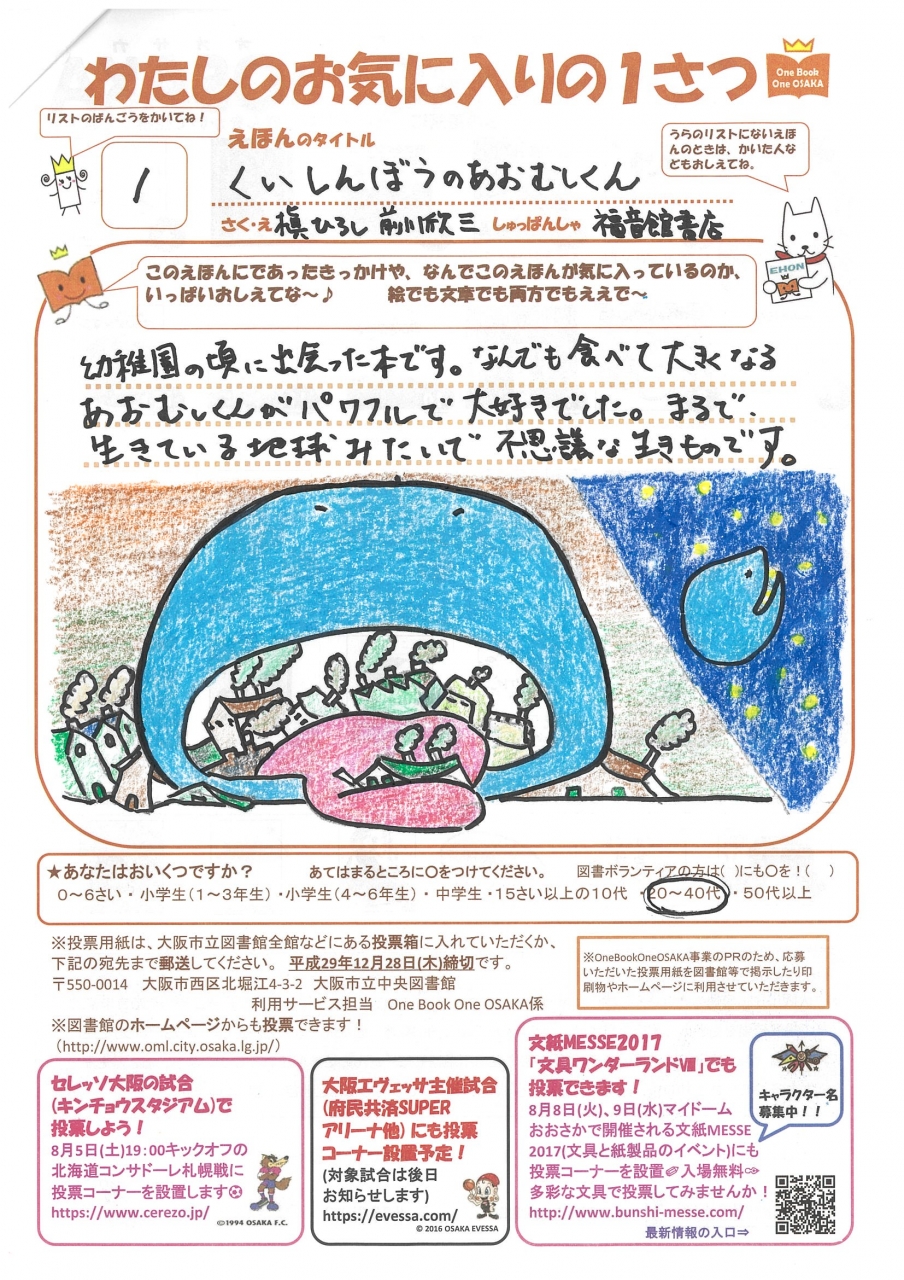 わたしのお気に入りの1さつ
One Book
One OSAKA
リストのばんごうをかいてね!
1
えほんのタイトル
うらのリストにないえほ
んのときは、かいた人な
どもおしえてね。
くいしんぼうのあおむしくん
さく・え 槇ひろし 前川欣三 しゅっぱんしゃ 福音館書店
EHON
このえほんにであったきっかけや、なんでこのえほんが気に入っているのか、
いっぱいおしえてな~♪ 絵でも文章でも両方でもええで~
幼稚園の頃に出会った本です。なんでも食べて大きくなる
あおむしくんがパワフルで大好きでした。まるで、
生きている地球みたいで不思議な生きものです。
★あなたはおいくつですか? あてはまるところに○をつけてください。 図書ボランティアの方は( )にも○を!( )
0~6さい・小学生(1~3年生)・小学生(4~6年生)・中学生・15さい以上の10代・20~40代・50代以上
※投票用紙は、大阪市立図書館全館などにある投票箱に入れていただくか、
下記の宛先まで郵送してください。 平成29年12月28日(木)締切です。
〒550-0014 大阪市西区北堀江4-3-2 大阪市立中央図書館
利用サービス担当 One Book One OSAKA係
※図書館のホームページからも投票できます!
(http://www.oml.city.osaka.lg.jp/)
※OneBookOneOSAKA事業のPRのため、応募
いただいた投票用紙を図書館等で掲示したり印
刷物やホームページに利用させていただきます。
セレッソ大阪の試合
(キンチョウスタジアム)で
投票しよう!
8月5日(土)19:00キックオフの
北海道コンサドーレ札幌戦に
投票コーナーを設置します
https://www.cerezo.jp/
©1994 OSAKA F.C.
大阪エヴェッサ主催試合
(府民共済SUPER
アリーナ他)にも投票
コーナー設置予定!
(対象試合は後日
お知らせします)
https://evessa.com/
© 2016 OSAKA EVESSA
文紙MESSE2017
「文具ワンダーランドⅧ」でも
投票できます!
8月8日(火)、9日(水)マイドーム
おおさかで開催される文紙MESSE
2017(文具と紙製品のイベント)にも
投票コーナーを設置✐入場無料✑
多彩な文具で投票してみませんか!
http://www.bunshi-messe.com/
最新情報の入口⇒
キャラクター名
募集中!!